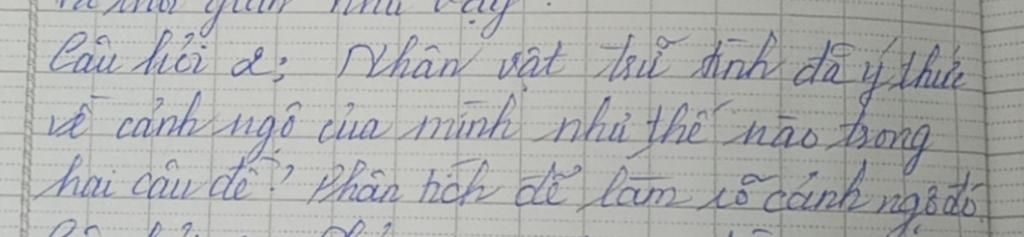 và thời gian như vậy.
Câu hỏi 2: Nhân vật trữ tình đã ý thức
về cảnh ngộ của mình như thế nào trong
hai câu đề? Phân tích để làm rõ cảnh ngộ đó.